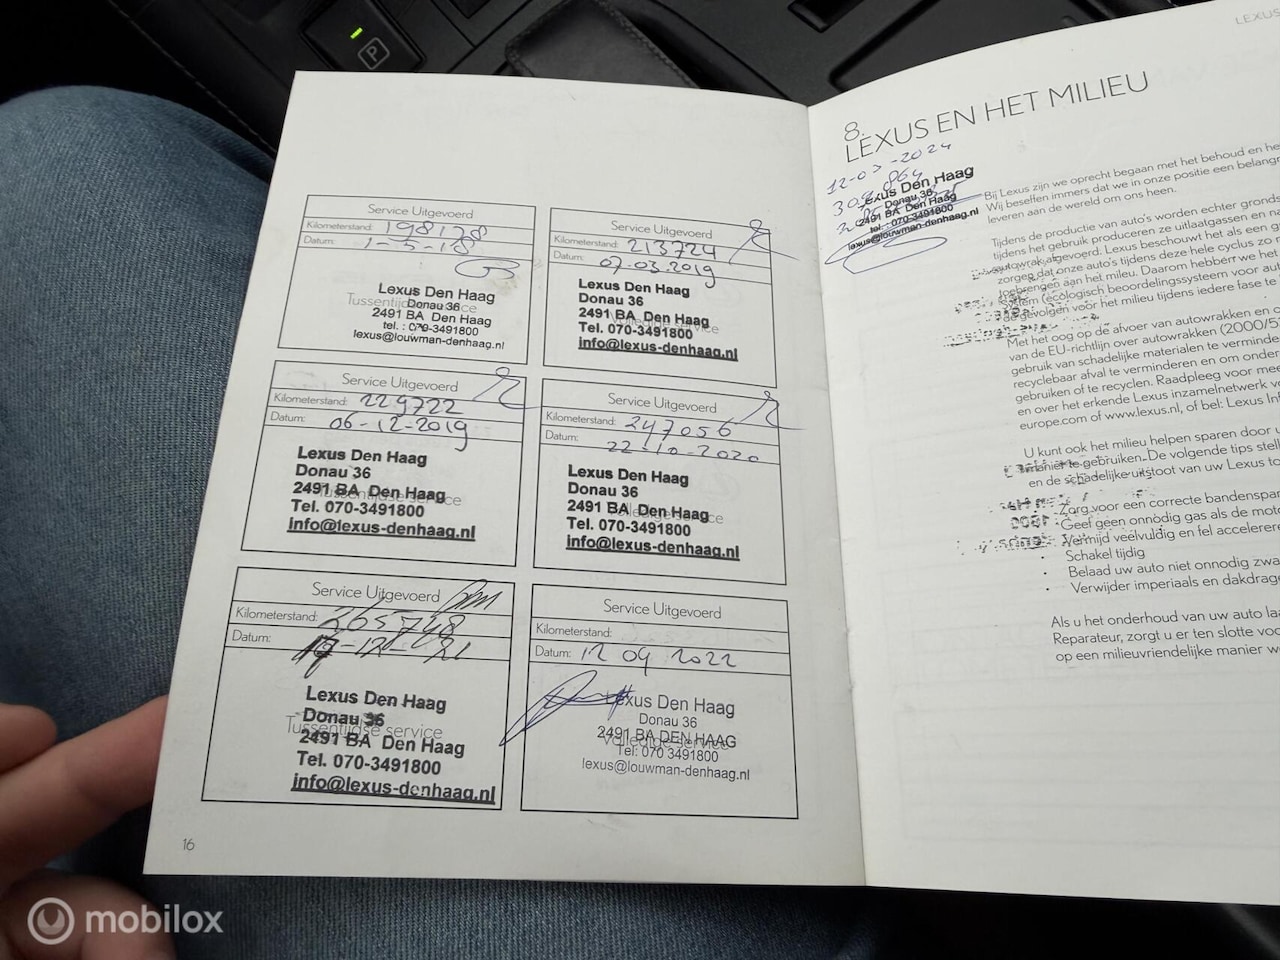 P
Service Uitgevoerd
Kilometerstand: 198178
Datum: 1-5-18
Tussentijdse service
Lexus Den Haag
Donau 36
2491 BA Den Haag
tel. : 070-3491800
lexus@louwman-denhaag.nl
Service Uitgevoerd
Kilometerstand: 213724
Datum: 07-03-2019
Volledige service
Lexus Den Haag
Donau 36
2491 BA Den Haag
Tel. 070-3491800
info@lexus-denhaag.nl
Service Uitgevoerd
Kilometerstand: 229722
Datum: 06-12-2019
Tussentijdse service
Lexus Den Haag
Donau 36
2491 BA Den Haag
Tel. 070-3491800
info@lexus-denhaag.nl
Service Uitgevoerd
Kilometerstand: 247056
Datum: 22-10-2020
Volledige service
Lexus Den Haag
Donau 36
2491 BA Den Haag
Tel. 070-3491800
info@lexus-denhaag.nl
Service Uitgevoerd
Kilometerstand: 265748
Datum: -12-21
Tussentijdse service
Lexus Den Haag
Donau 36
2491 BA Den Haag
Tel. 070-3491800
info@lexus-denhaag.nl
Service Uitgevoerd
Kilometerstand:
Datum: 12 09 2022
Volledige service
Lexus Den Haag
Donau 36
2491 BA DEN HAAG
Tel: 070 3491800
lexus@louwman-denhaag.nl
16
LEXUS
8.
LEXUS EN HET MILIEU
Lexus Den Haag
Donau 36
2491 BA Den Haag
tel. : 070-3491800
lexus@louwman-denhaag.nl
Bij Lexus zijn we oprecht begaan met het behoud en he
Wij beseffen immers dat we in onze positie een belangr
leveren aan de wereld om ons heen.
Tijdens de productie van auto's worden echter gronds
tijdens het gebruik produceren ze uitlaatgassen en na
autowrak afgevoerd. Lexus beschouwt het als een g
zorgen dat onze auto's tijdens deze hele cyclus zo
toebrengen aan het milieu. Daarom hebben we het
systeem (ecologisch beoordelingssysteem voor aut
de gevolgen voor het milieu tijdens iedere fase te
Met het oog op de afvoer van autowrakken en
van de EU-richtlijn over autowrakken (2000/53
gebruik van schadelijke materialen te verminde
recyclebaar afval te verminderen en om onder
gebruiken of te recyclen. Raadpleeg voor mee
en over het erkende Lexus inzamelnetwerk v
europe.com of www.lexus.nl, of bel: Lexus Inf
U kunt ook het milieu helpen sparen door u
manier te gebruiken. De volgende tips stell
en de schadelijke uitstoot van uw Lexus to
Zorg voor een correcte bandenspar
Geef geen onnodig gas als de moto
Vermijd veelvuldig en fel accelerere
• Schakel tijdig
• Belaad uw auto niet onnodig zwa
• Verwijder imperiaals en dakdrage
Als u het onderhoud van uw auto laa
Reparateur, zorgt u er ten slotte voo
op een milieuvriendelijke manier w
mobilox